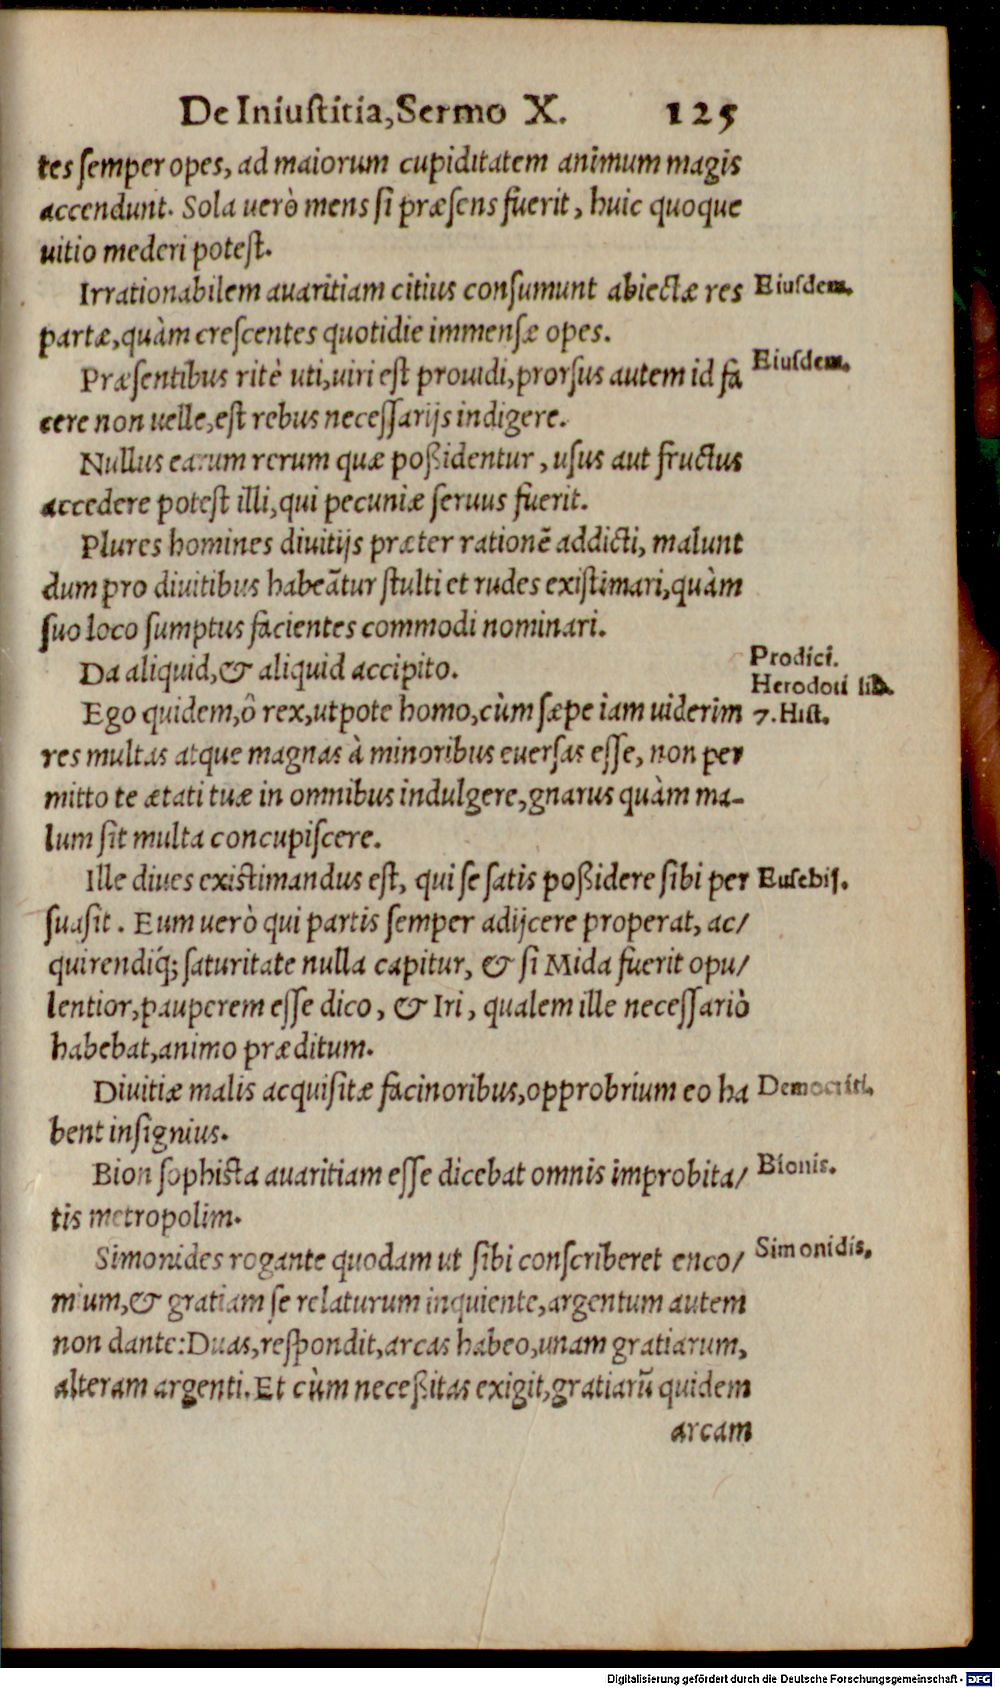 De Iniustitia, Sermo X. 125
tes semper opes, ad maiorum cupiditatem animum magis
accendunt. Sola uerò mens si præsens fuerit, huic quoque
uitio mederi potest.
Irrationabilem auaritiam citius consumunt abiectæ res
Eiusdem.
partæ, quàm crescentes quotidie immensæ opes.
Præsentibus ritè uti, uiri est prouidi, prorsus autem id fa
Eiusdem.
cere non uelle, est rebus necessarijs indigere.
Nullus earum rerum quæ poßidentur, usus aut fructus
accedere potest illi, qui pecuniæ seruus fuerit.
Plures homines diuitijs præter rationē addicti, malunt
dum pro diuitibus habeātur stulti et rudes existimari, quàm
suo loco sumptus facientes commodi nominari.
Da aliquid, & aliquid accipito.
Prodici.
Herodoti lib.
Ego quidem, ô rex, utpote homo, cùm sæpe iam uiderim
7. Hist.
res multas atque magnas à minoribus euersas esse, non per
mitto te ætati tuæ in omnibus indulgere, gnarus quàm ma-
lum sit multa concupiscere.
Ille diues existimandus est, qui se satis poßidere sibi per
Eusebij.
suasit. Eum uerò qui partis semper adijcere properat, ac/
quirendiq́; saturitate nulla capitur, & si Mida fuerit opu/
lentior, pauperem esse dico, & Iri, qualem ille necessariò
habebat, animo præditum.
Diuitiæ malis acquisitæ facinoribus, opprobrium eo ha
Democriti.
bent insignius.
Bion sophista auaritiam esse dicebat omnis improbita/
Bionis.
tis metropolim.
Simonides rogante quodam ut sibi conscriberet enco/
Simonidis.
mium, & gratiam se relaturum inquiente, argentum autem
non dante: Duas, respondit, arcas habeo, unam gratiarum,
alteram argenti. Et cùm neceßitas exigit, gratiarū quidem
arcam
Digitalisierung gefördert durch die Deutsche Forschungsgemeinschaft - DFG